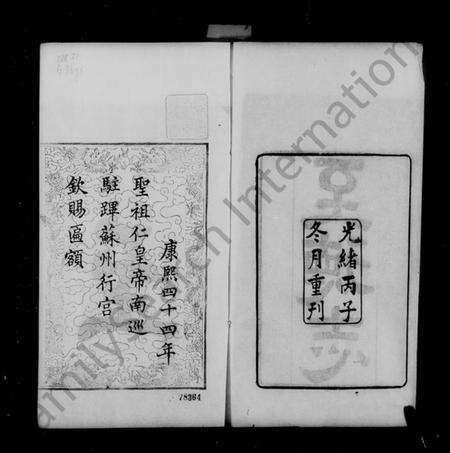 光緒丙子
冬月重刊
康熙四十四年
聖祖仁皇帝南巡
駐蹕蘇州行宮
欽賜匾額
78364
FamilySearch International